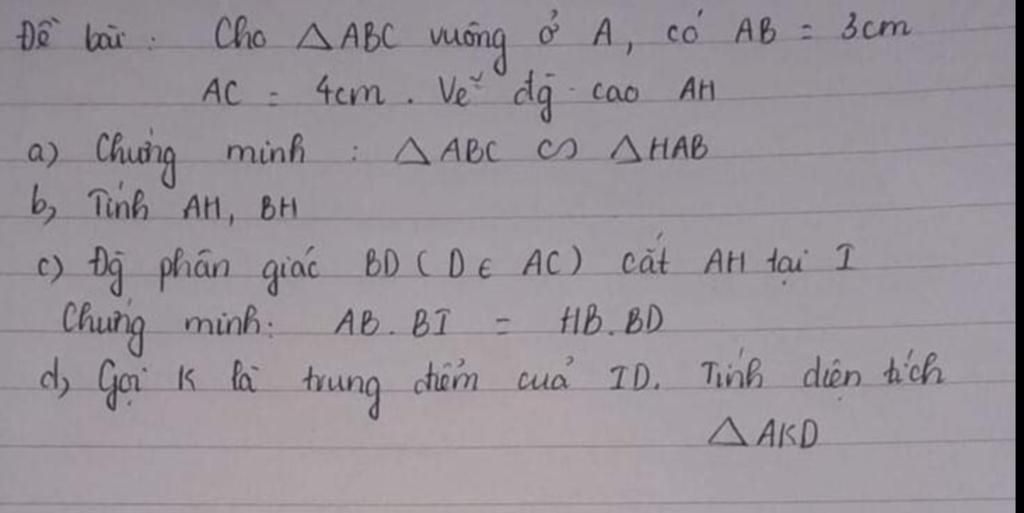 Đề bài : Cho △ABC vuông ở A, có AB = 3cm
AC = 4cm. Vẽ đg cao AH
a) Chứng minh : △ABC ∽ △HAB
b, Tính AH, BH
c) Đg phân giác BD (D ∈ AC) cắt AH tại I
Chứng minh: AB.BI = HB.BD
d, Gọi K là trung điểm của ID. Tính diện tích
△AKD